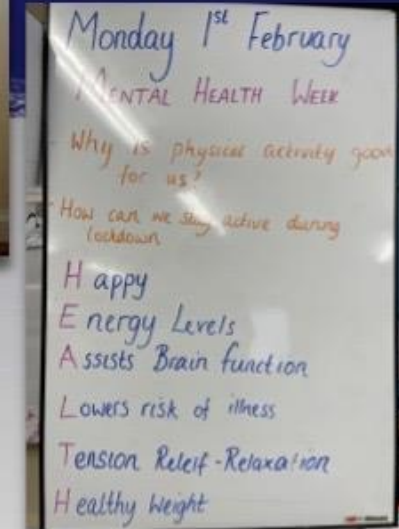 Monday 1st February
MENTAL HEALTH WEEK
Why is physical activity good
for us?
How can we stay active during
lockdown
Happy
Energy Levels
Assists Brain function
Lowers risk of illness
Tension Releif - Relaxation
Healthy Weight